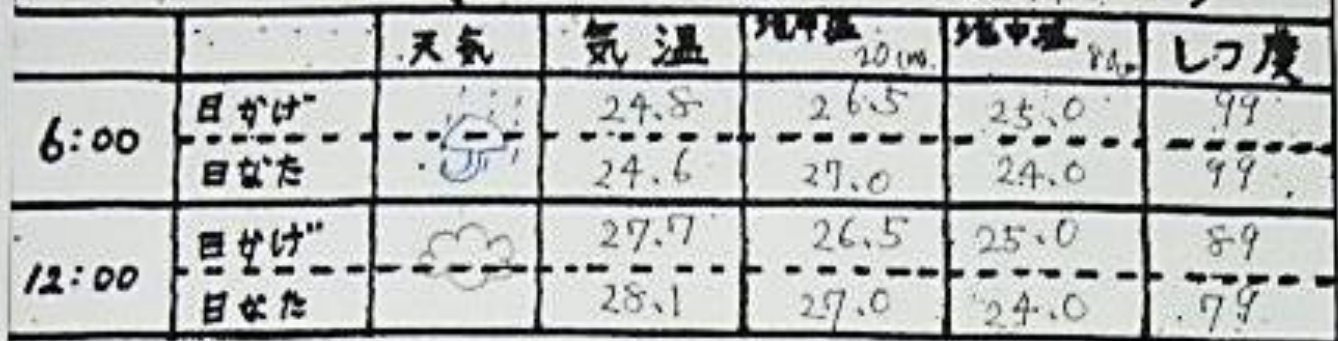 天気 気温 地中温 20cm. 地中温 80cm しつ度
6:00 日かげ 24.8 26.5 25.0 99
日なた 24.6 27.0 24.0 99
12:00 日かげ 27.7 26.5 25.0 89
日なた 28.1 27.0 24.0 79